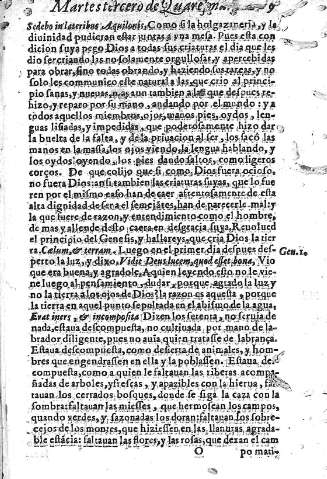 Martes tercero de Quares
Sedebo in lateribus Aquilonis, Como si la holgazaneria, y la
diuinidad pudieran estar juntas a vna mesa. Pues esta con
dicion suya pego Dios a todas sus criaturas el dia que les
dio ser criando las no solamente orgullosas, y apercebidas
para obrar, sino todas obrando, y haziendo sus tareas, y no
solo les comunico este natural a las que crio al princi
pio sanas, y nueuas, mas aun tambien a las que despues re-
hizo, y reparo por su mano, andando por el mundo: y a
todos aquellos miembros, ojos, manos pies, oydos, len-
guas lisiadas, y impedidas, que poderosamente hizo dar
la buelta de la falta, y de la priuacion al ser, los sacò las
manos en la massa, los ojos viendo, la lengua hablando, y
los oydos oyendo, los pies dando saltos, como ligeros
corços. De que colijo que si como Dios fuera ocioso,
no fuera Dios: ansi tambien las criaturas suyas, que lo fue
ren por el mismo caso han de caer afrentosamente de esta
alta dignidad de ser a el semejãtes, han de parecerle mal: y
la que fuere de razon, y entendimiento como el hombre,
de mas y allende desto caera en desgracia suya. Rebolued
el principio del Genesis, y hallareys, que cria Dios la tie
rra. Cælum, & terram. Luego en el primer dia despues des-
perto la luz, y dixo. Vidit Deus lucem, quod esset bona, Vio
Gen. 1.
que era buena, y agradole. A quien leyendo esto no le vie-
ne luego al pensamiento, dudar, porque agradò la luz y
no la tierra a los ojos de Dios: la razon es aquesta, porque
la tierra en aquel punto sepultada en el abismo de la agua,
Erat iners, & incomposita Dizen los setenta, no seruia de
nada, estaua descompuesta, no cultiuada por mano de la-
brador diligente, pues no auia quien tratasse de labrança.
Estaua descompuesta, como desierta de animales, y hom-
bres que engendrassen en ella y la poblassen. Estaua des-
compuesta, como a quien le faltauan las riberas acompa-
ñadas de arboles, y frescas, y apazibles con la hierua, fal-
tauan los cerrados bosques, donde se siga la caza con la
sombra: faltauan las miesses, que hermosean los campos,
quando verdes, y sazonadas los doran: faltauan los sobre-
cejos de los montes, que hiziessen en las llanuras agrada-
ble estãcia: faltauan las flores, y las rosas, que dexan el cam
O po mati-